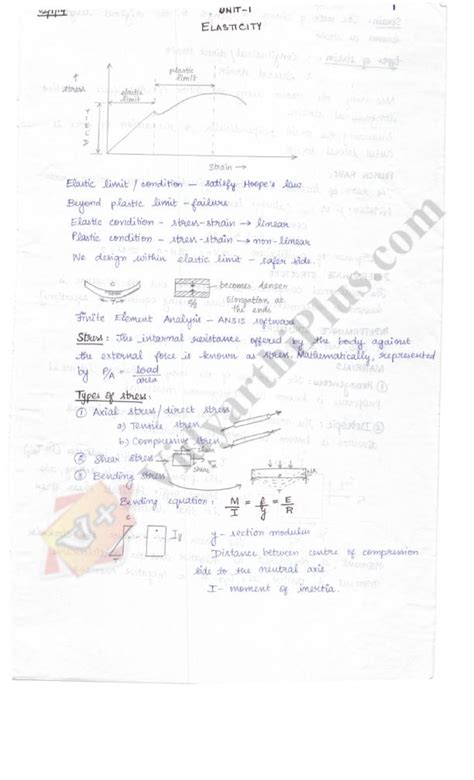 UNIT-1
1
ELASTICITY
plastic
limit
elastic
limit
stress
YIELD
strain
Elastic limit / condition – satisfy Hoope's law.
Beyond plastic limit – failure
Elastic condition - stress-strain → linear
Plastic condition – stress-strain → non-linear
We design within elastic limit – safer side.
C
T
becomes denser
Elongation at
the ends
Finite Element Analysis – ANSIS software
Stress: The internal resistance offered by the body against
the external force is known as stress. Mathematically, represented
by P/A = load/area
Types of stress:
① Axial stress/direct stress
a) Tensile stress
b) Compressive stress
② Shear stress
③ Bending stress
Bending equation: M/I = f/y = E/R
y - section modulus
Distance between centre of compression
side to the neutral axis
I - moment of inertia.
VidyarthiPlus.com
V+